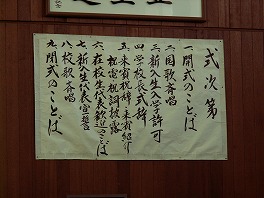 式次第
一、開式のことば
二、国歌斉唱
三、新入生入学許可
四、学校長式辞
五、来賓祝辞・来賓紹介
祝電祝詞披露
六、在校生代表歓迎のことば
七、新入生代表宣誓
八、校歌斉唱
九、閉式のことば